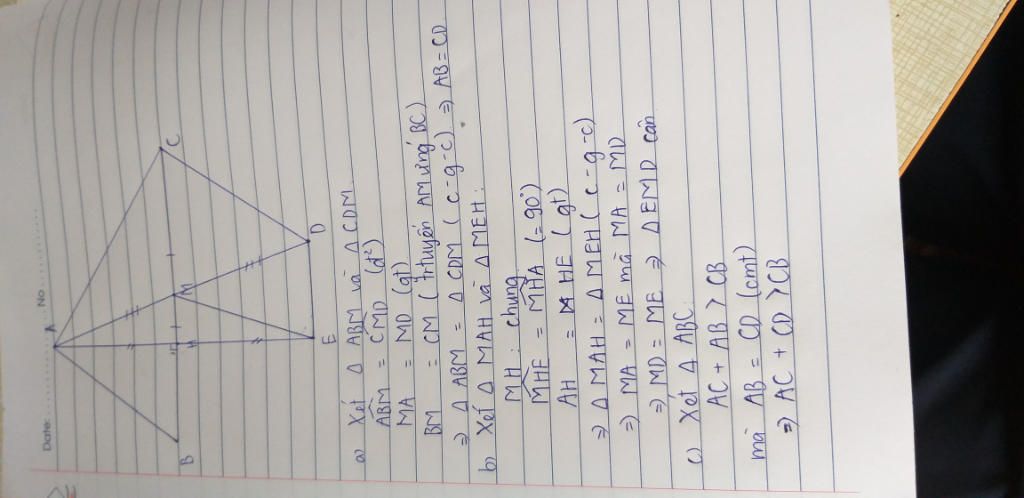 Date: No
A
B
H
M
C
E
D
a) Xét Δ ABM và Δ CDM.
ABM = CMD (đ²)
MA = MD (gt)
BM = CM (trtuyến AM ứng BC)
⇒ Δ ABM = Δ CDM ( c - g - c) ⇒ AB = CD
b) Xét Δ MAH và Δ MEH :
MH : chung
MHE = MHA (= 90°)
AH = HE (gt)
⇒ Δ MAH = Δ MEH ( c - g - c)
⇒ MA = ME mà MA = MD
⇒ MD = ME ⇒ Δ EMD cân
c) Xét Δ ABC:
AC + AB > CB
mà AB = CD (cmt)
⇒ AC + CD > CB